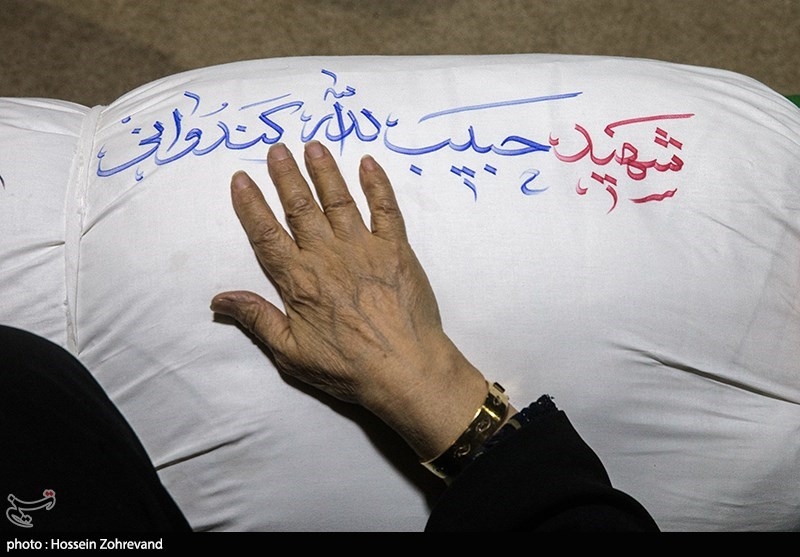 شهید حبیب الله کندوانی
photo : Hossein Zohrevand